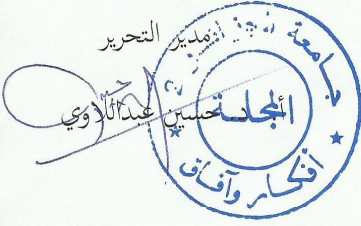 مدير التحرير
أ.د. حسين عبداللاوي
جامعة الجزائر 2
المجلة
أفكار وآفاق